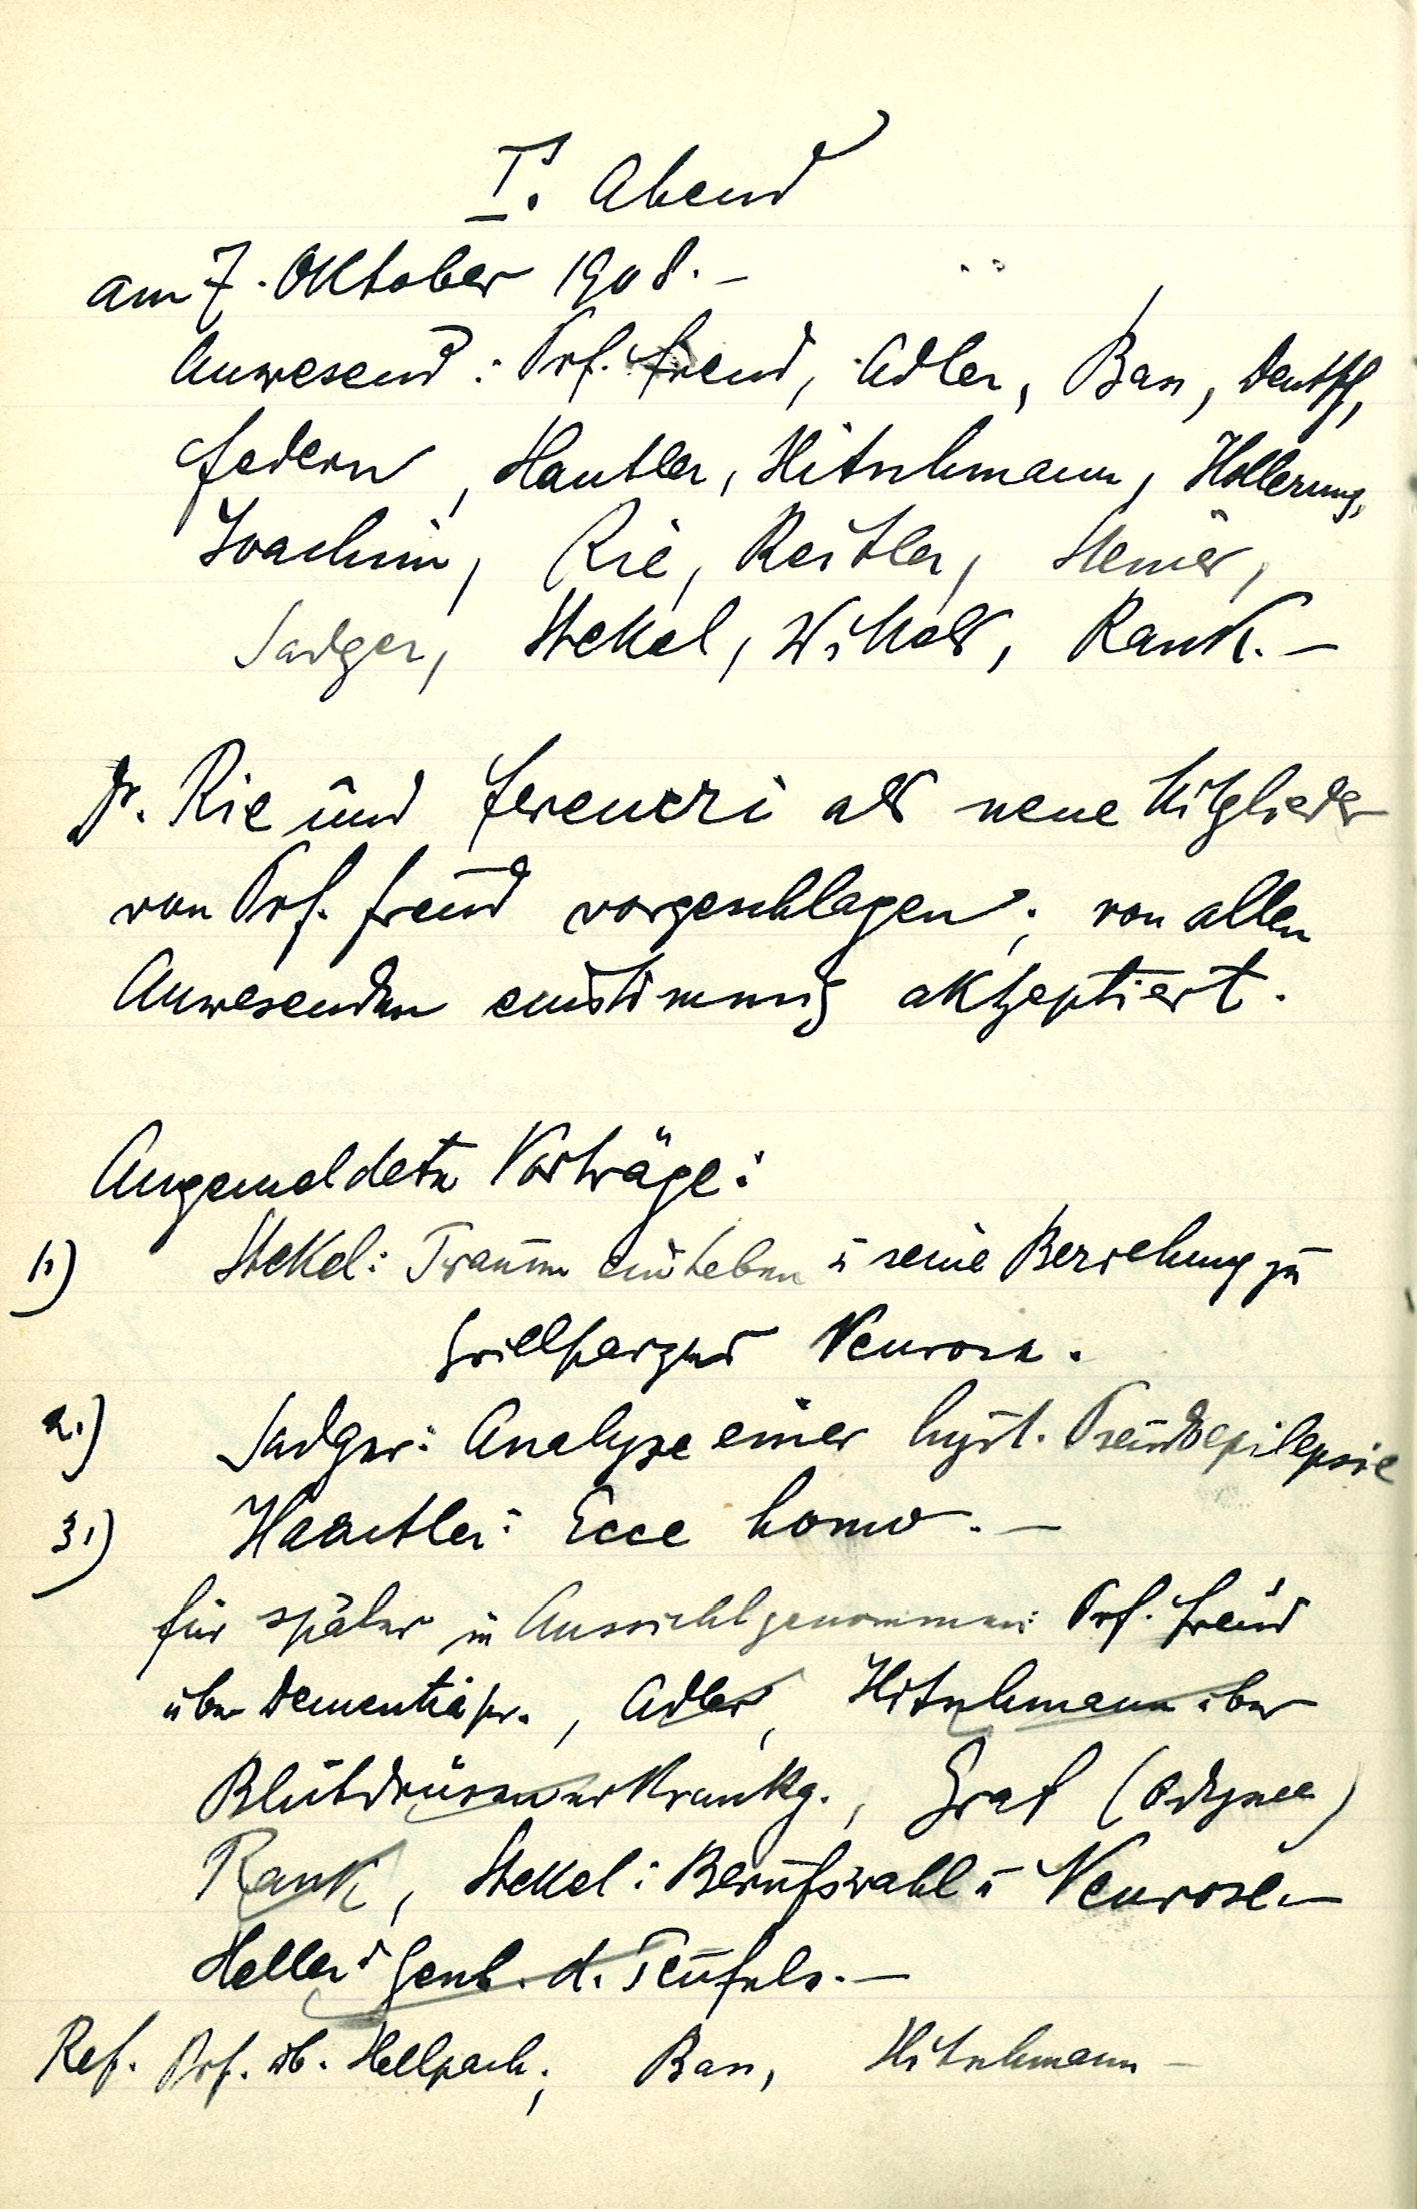 I. Abend
am 7. Oktober 1908. –
Anwesend: Prf. Freud, Adler, Bass, Deutsch,
Federn, Häutler, Hitschmann, Hollerung,
Joachim, Rie, Reitler, Steiner,
Sadger, Stekel, Wittels, Rank. –
Dr. Rie und Ferenczi als neue Mitglieder
von Prf. Freud vorgeschlagen; von allen
Anwesenden einstimmig akzeptiert.
Angemeldete Vorträge:
1.) Stekel: Traum ein Leben u seine Beziehung zu
Grillparzers Neurose.
2.) Sadger: Analyse einer hyst. Pseudoepilepsie
3.) Häutler: Ecce homo. –
für später in Aussicht genommen: Prf. Freud
über Dementia pr., Adler, Hitschmann über
Blutdrüsenerkrankg., Graf (Odyssee)
Rank, Stekel: Berufswahl u Neurose. –
Heller: Gesch. d. Teufels. –
Ref. Prf. üb. Hellpach; Bass, Hitschmann –